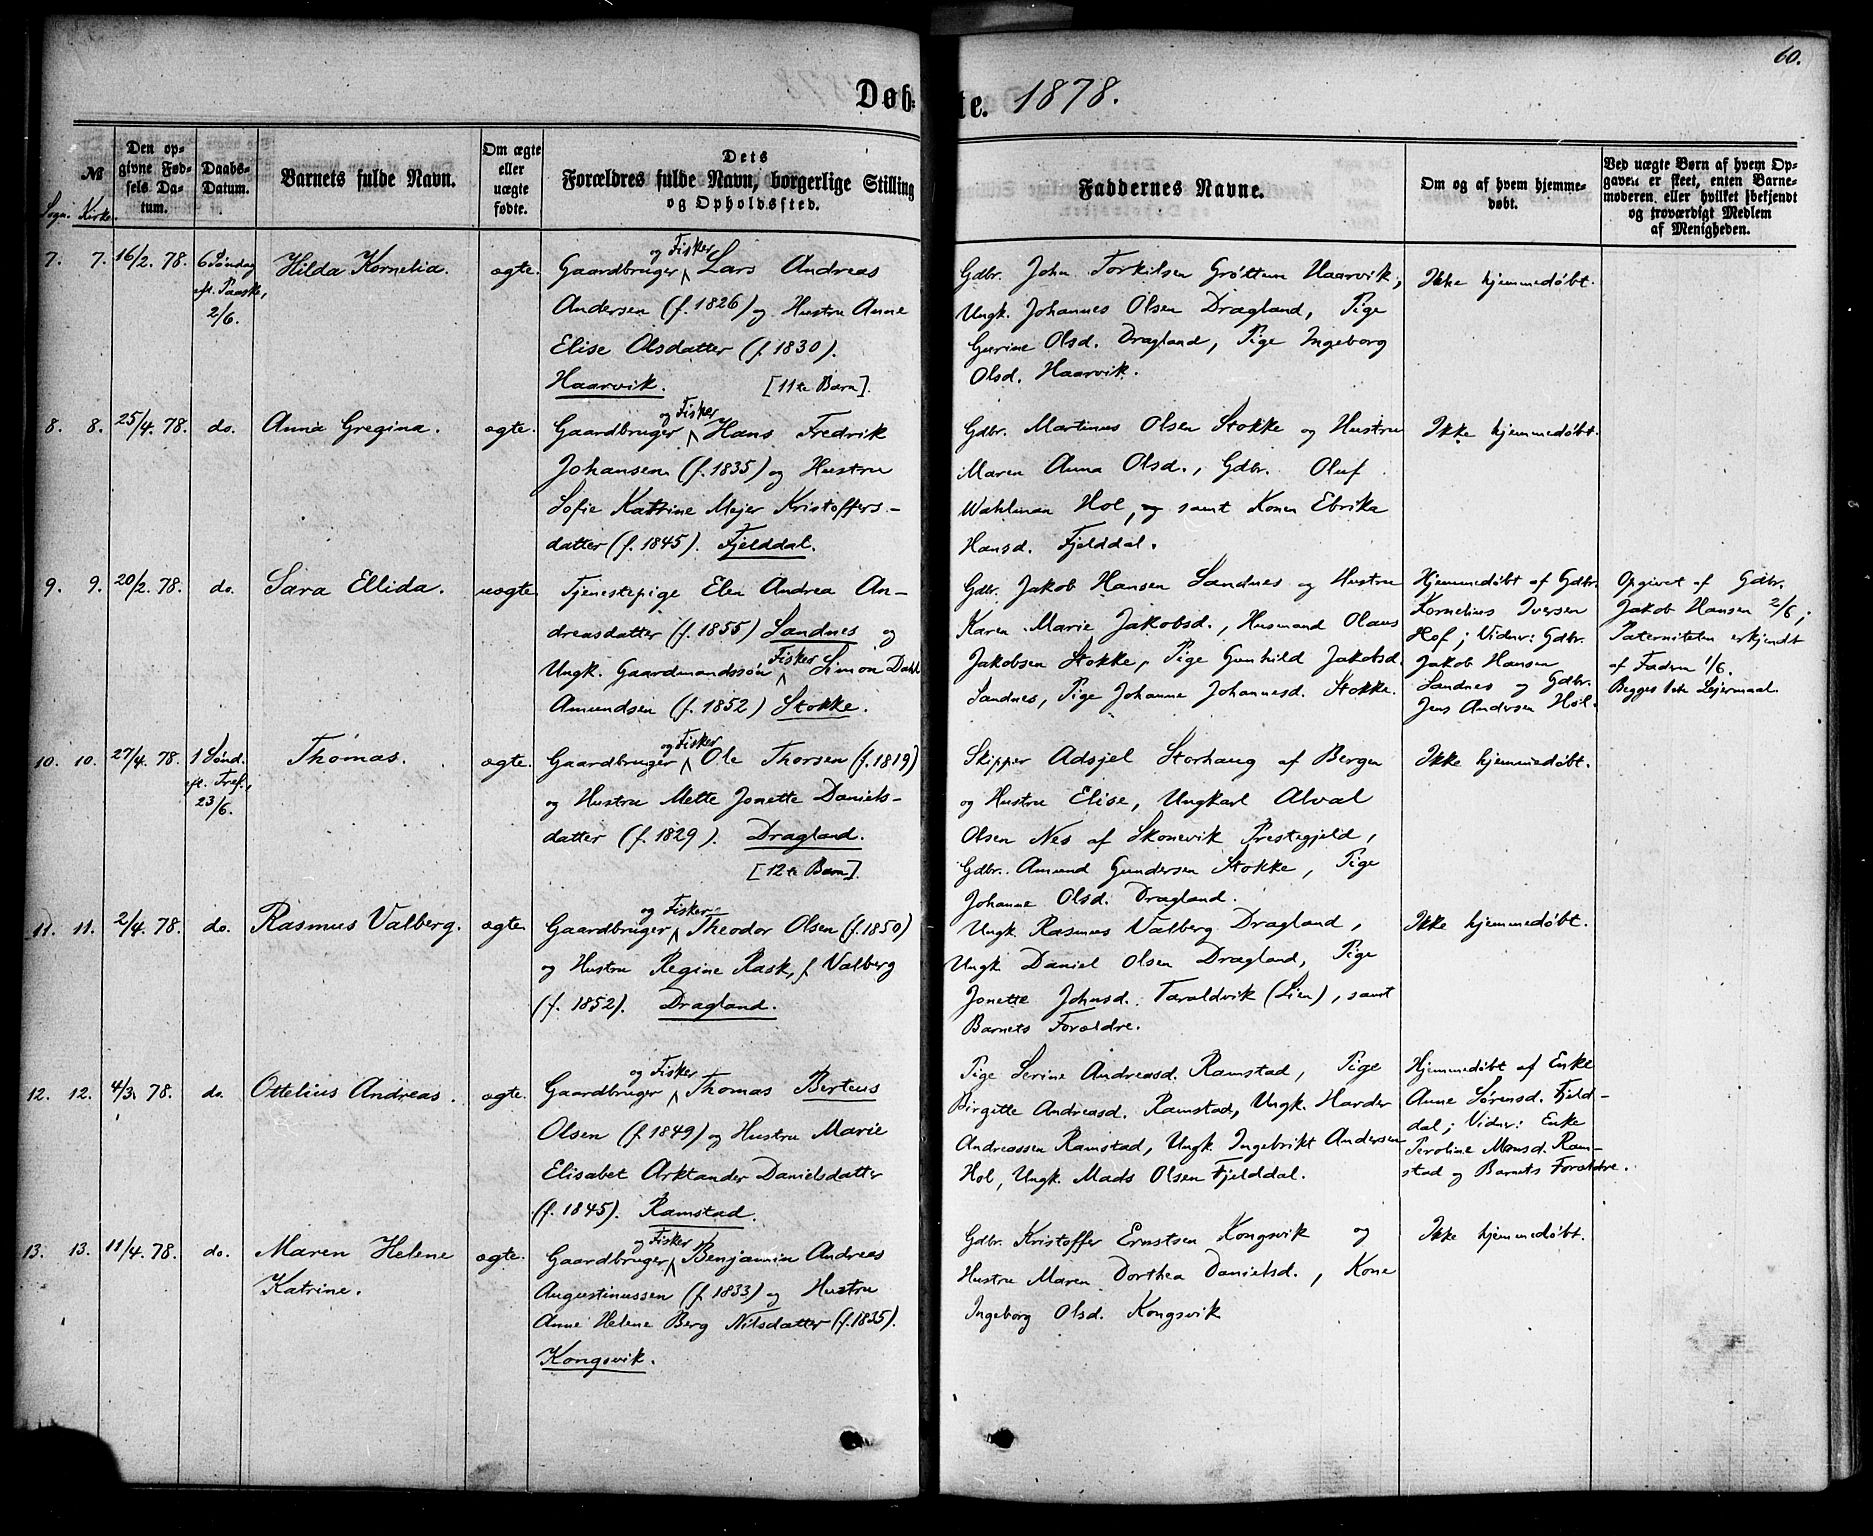 60.
Døbte. 1878.
№
Sogn. Kirke.
Den opgivne Fødsels Datum.
Daabs-Datum.
Barnets fulde Navn.
Om ægte eller uægte fødte.
Dets Forældres fulde Navn, borgerlige Stilling og Opholdssted.
Faddernes Navne.
Om og af hvem hjemmedøbt.
Ved uægte Børn af hvem Opgaven er skeet, enten Barnemoderen eller hvilket bekjendt og troværdigt Medlem af Menigheden.
7. 7. 16/2. 78. 6 Søndag eft. Paaske, 2/6. Hilda Kornelia. ægte.
Gaardbruger og Fisker Lars Andreas
Andersen (f. 1826) og Hustru Anne
Elise Olsdatter (f. 1830).
Haarvik. [11te Barn].
Gdbr. John Torkilsen Grøttum Haarvik,
Ungk. Johannes Olsen Dragland, Pige
Gurine Olsd. Dragland, Pige Ingeborg
Olsd. Haarvik.
Ikke hjemmedøbt.
8. 8. 25/4. 78. do. Anna Gregina. ægte.
Gaardbruger og Fisker Hans Fredrik
Johansen (f. 1835) og Hustru
Sofie Katrine Mejer Kristoffers-
datter (f. 1845). Fjelddal.
Gdbr. Martinus Olsen Stokke og Hustru
Maren Anna Olsd., Gdbr. Oluf
Wahlman Hol, og samt Konen Ebrika
Hansd. Fjelddal.
Ikke hjemmedøbt.
9. 9. 20/2. 78. do. Sara Ellida. uægte.
Tjenestepige Elen Andrea An-
dreasdatter (f. 1855) Sandnes og
Ungk. Gaardmandssøn Fisker Simon Dahl
Amundsen (f. 1852) Stokke.
Gdbr. Jakob Hansen Sandnes og Hustru
Karen Marie Jakobsd., Husmand Olaus
Jakobsen Stokke, Pige Gunhild Jakobsd.
Sandnes, Pige Johanne Johannesd. Stokke.
Hjemmedøbt af Gdbr.
Kornelius Iversen
Hof; Vidner: Gdbr.
Jakob Hansen
Sandnes og Gdbr.
Jens Andersen Hol.
Opgivet af Gdbr.
Jakob Hansen 2/6;
Paterniteten erkjendt
af Faderen 1/6.
Begges 1ste Leiermaal.
10. 10. 27/4. 78. 1 Sønd. eft. Tref., 23/6. Thomas. ægte.
Gaardbruger og Fisker Ole Thorsen (f. 1819)
og Hustru Mette Jonette Daniels-
datter (f. 1829). Dragland.
[12te Barn].
Skipper Adsjel Storhaug af Bergen
og Hustru Elise, Ungkarl Alval
Olsen Nes af Skonevik Prestegjeld,
Gdbr. Amund Gundersen Stokke, Pige
Johanne Olsd. Dragland.
Ikke hjemmedøbt.
11. 11. 2/4. 78. do. Rasmus Valberg. ægte.
Gaardbruger og Fisker Theodor Olsen (f. 1850)
og Hustru Regine Rask, f. Valberg
(f. 1852). Dragland.
Ungk. Rasmus Valberg Dragland,
Ungk. Daniel Olsen Dragland, Pige
Jonette Johnsd. Taraldvik (Lien), samt
Barnets Forældre.
Ikke hjemmedøbt.
12. 12. 4/3. 78. do. Ottelius Andreas. ægte.
Gaardbruger og Fisker Thomas Berteus
Olsen (f. 1849) og Hustru Marie
Elisabet Arktander Danielsdatter
(f. 1845). Ramstad.
Pige Serine Andreasd. Ramstad, Pige
Birgitte Andreasd. Ramstad, Ungk. Harder
Andreassen Ramstad, Ungk. Ingebrikt Andersen
Hol, Ungk. Mads Olsen Fjelddal.
Hjemmedøbt af Enke
Anne Sørensd. Fjeld-
dal; Vidner: Enke
Peroline Monsd. Ram-
stad og Barnets Forældre.
13. 13. 11/4. 78. do. Maren Helene Katrine. ægte.
Gaardbruger og Fisker Benjamin Andreas
Augustinussen (f. 1833) og Hustru
Anne Helene Berg Nilsdatter (f. 1835).
Kongsvik.
Gdbr. Kristoffer Ernstsen Kongsvik og
Hustru Maren Dorthea Danielsd., Kone
Ingeborg Olsd. Kongsvik
Ikke hjemmedøbt.